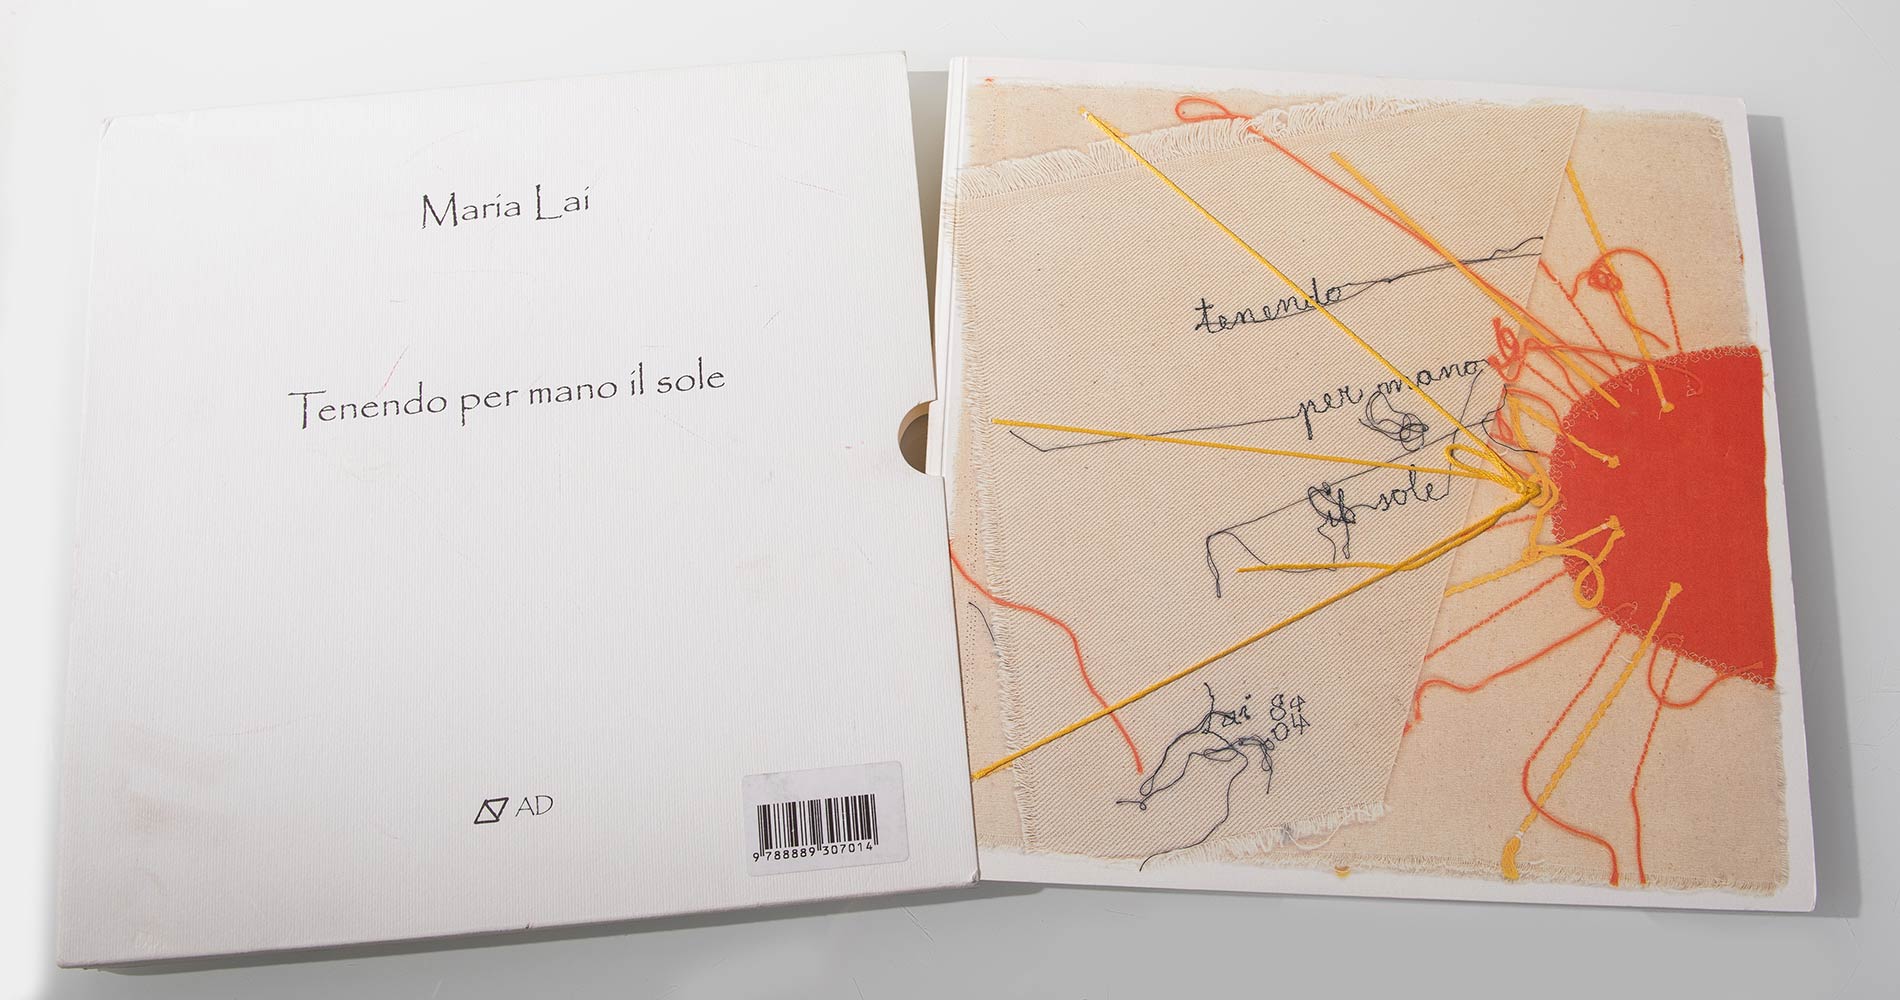 Maria Lai
Tenendo per mano il sole
AD
9 788889 307014
tenendo
per mano
il sole
Lai 84
04